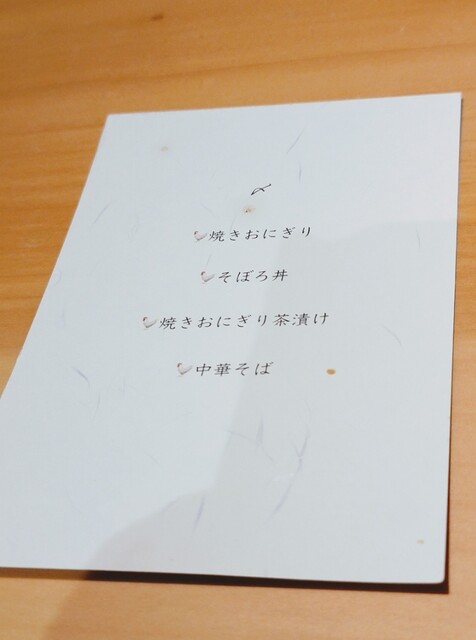 〆
焼きおにぎり
そぼろ丼
焼きおにぎり茶漬け
中華そば